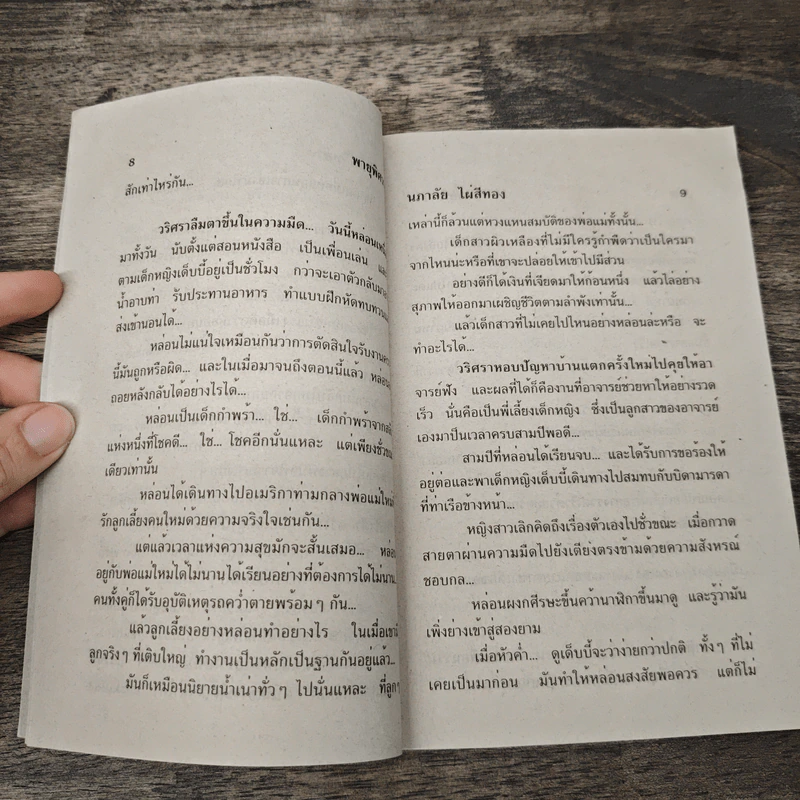 8
สักเท่าไหร่กัน...
วริศราลืมตาขึ้นในความมืด... วันนี้หล่อน
มาทั้งวัน นับตั้งแต่สอนหนังสือ เป็นเพื่อนเล่น
ตามเด็กหญิงเด็บบี้อยู่เป็นชั่วโมง กว่าจะเอาตัวกลับมา
น้ำอาบทา รับประทานอาหาร ทำแบบฝึกหัดทบทวน
ส่งเข้านอนได้...
หล่อนไม่แน่ใจเหมือนกันว่าการตัดสินใจรับงาน
นี้มันถูกหรือผิด... และในเมื่อมาจนถึงตอนนี้แล้ว หล่อน
ถอยหลังกลับได้อย่างไรได้...
หล่อนเป็นเด็กกำพร้า... ใช่... เด็กกำพร้าจาก
แห่งหนึ่งที่โชคดี... ใช่... โชคอีกนั่นแหละ แต่เพียงชั่ว
เดียวเท่านั้น
หล่อนได้เดินทางไปอเมริกาท่ามกลางพ่อแม่ใหม่
รักลูกเลี้ยงคนใหม่ด้วยความจริงใจเช่นกัน...
แต่แล้วเวลาแห่งความสุขมักจะสั้นเสมอ... หล่อน
อยู่กับพ่อแม่ใหม่ได้ไม่นานได้เรียนอย่างที่ต้องการได้ไม่นาน
คนทั้งคู่ก็ได้รับอุบัติเหตุรถคว่ำตายพร้อมๆ กัน...
แล้วลูกเลี้ยงอย่างหล่อนทำอย่างไร ในเมื่อเขามี
ลูกจริงๆ ที่เติบใหญ่ ทำงานเป็นหลักเป็นฐานกันอยู่แล้ว...
มันก็เหมือนนิยายน้ำเน่าทั่วๆ ไปนั่นแหละ ที่ลูกๆ
นภาลัย ไผ่สีทอง 9
เหล่านี้ก็ล้วนแต่หวงแหนสมบัติของพ่อแม่ทั้งนั้น...
เด็กสาวผิวเหลืองที่ไม่มีใครรู้กำพืดว่าเป็นใครมา
จากไหนน่ะหรือที่เขาจะปล่อยให้เข้าไปมีส่วน
อย่างดีก็ได้เงินที่เจียดมาให้ก้อนหนึ่ง แล้วไล่อย่าง
สุภาพให้ออกมาเผชิญชีวิตตามลำพังเท่านั้น...
แล้วเด็กสาวที่ไม่เคยไปไหนอย่างหล่อนล่ะหรือ จะ
ทำอะไรได้...
วริศราหอบปัญหาบ้านแตกครั้งใหม่ไปคุยให้อา
จารย์ฟัง และผลที่ได้ก็คืองานที่อาจารย์ช่วยหาให้อย่างรวด
เร็ว นั่นคือเป็นพี่เลี้ยงเด็กหญิง ซึ่งเป็นลูกสาวของอาจารย์
เองมาเป็นเวลาครบสามปีพอดี...
สามปีที่หล่อนได้เรียนจบ... และได้รับการขอร้องให้
อยู่ต่อและพาเด็กหญิงเด็บบี้เดินทางไปสมทบกับบิดามารดา
ที่ท่าเรือข้างหน้า...
หญิงสาวเลิกคิดถึงเรื่องตัวเองไปชั่วขณะ เมื่อกวาด
สายตาผ่านความมืดไปยังเตียงตรงข้ามด้วยความสังหรณ์
ชอบกล...
หล่อนผงกศีรษะขึ้นคว้านาฬิกาขึ้นมาดู และรู้ว่ามัน
เพิ่งย่างเข้าสู่สองยาม
เมื่อหัวค่ำ... ดูเด็บบี้จะว่าง่ายกว่าปกติ ทั้งๆ ที่ไม่
เคยเป็นมาก่อน มันทำให้หล่อนสงสัยพอควร แต่ก็ไม่